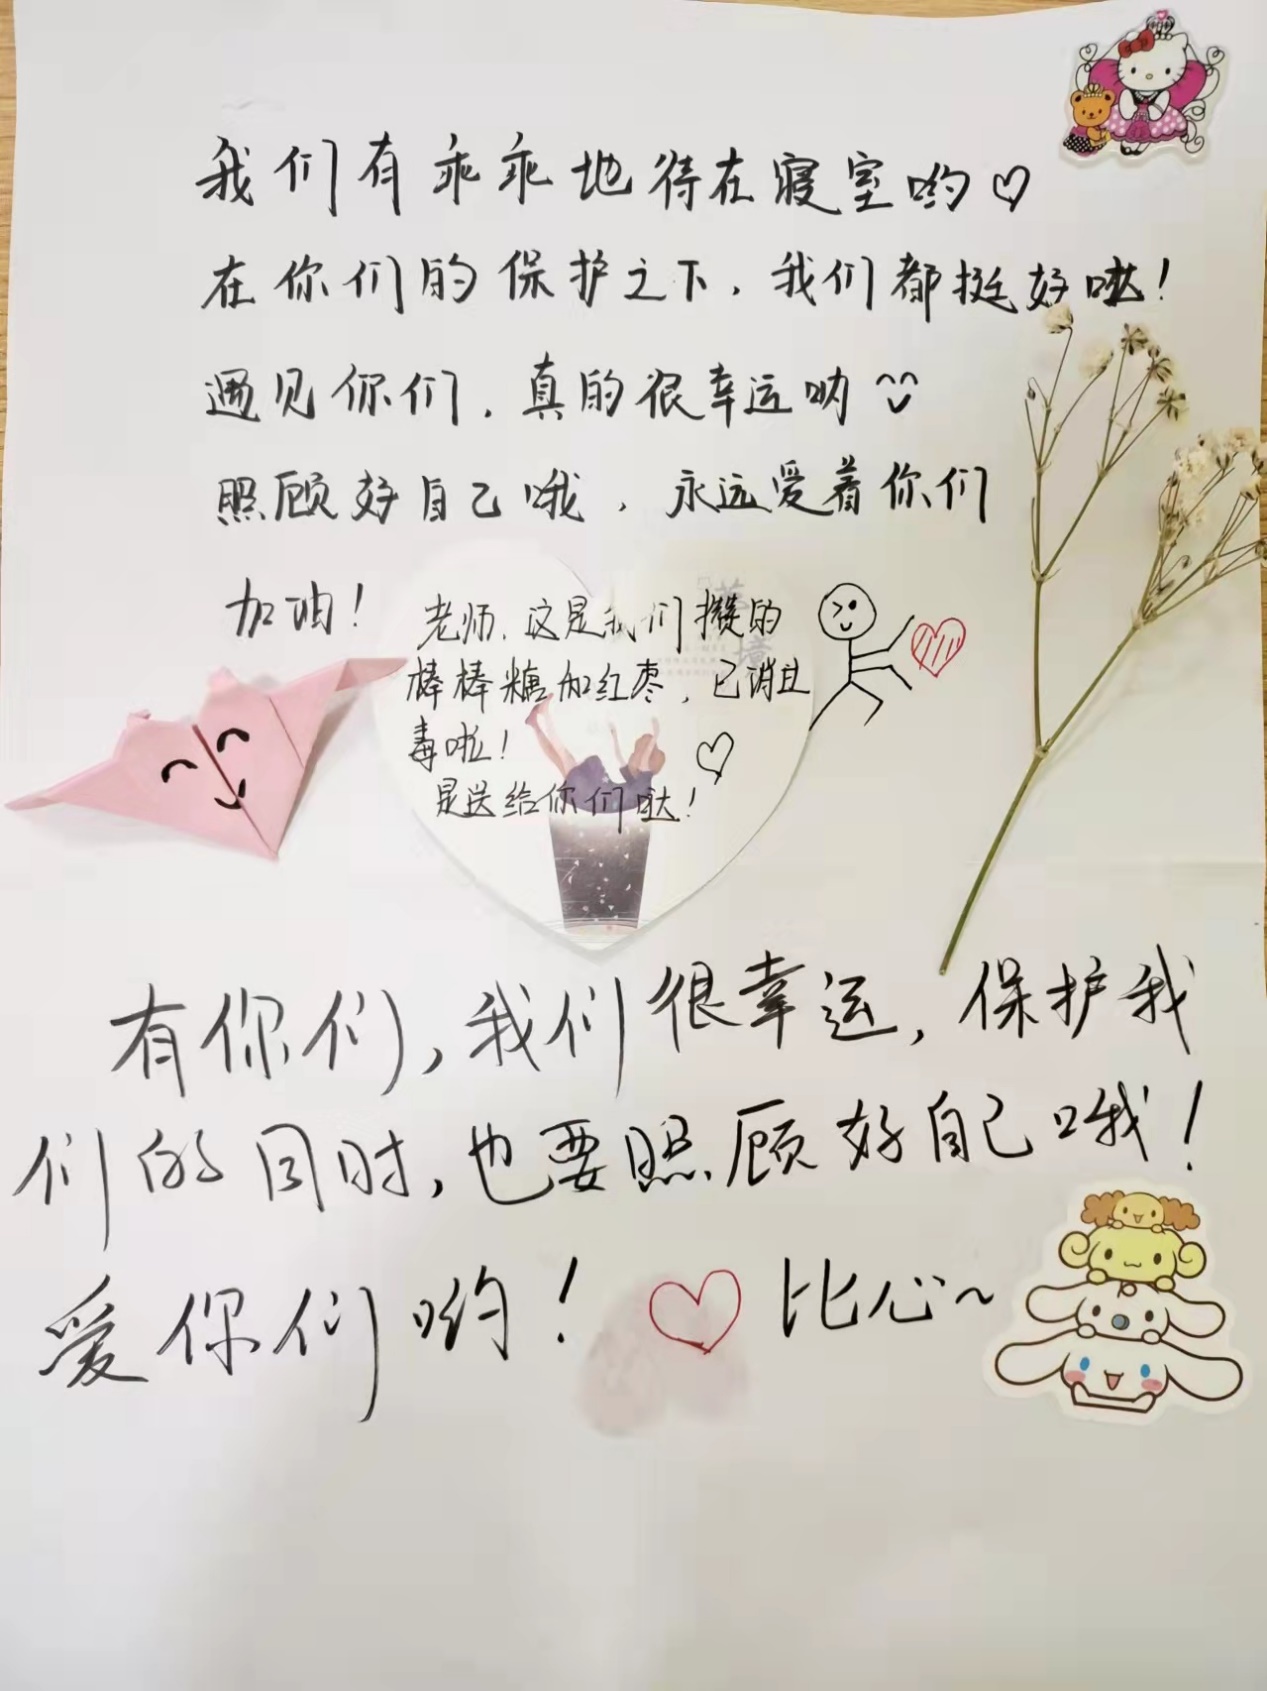 我们有乖乖地待在寝室哟♡
在你们的保护之下，我们都挺好哒！
遇见你们，真的很幸运呐
照顾好自己哦，永远爱着你们
加油！
老师，这是我们攒的
棒棒糖加红枣，已消
毒啦！
是送给你们哒！
有你们，我们很幸运，保护我
们的同时，也要照顾好自己哦！
爱你们哟！♡比心~